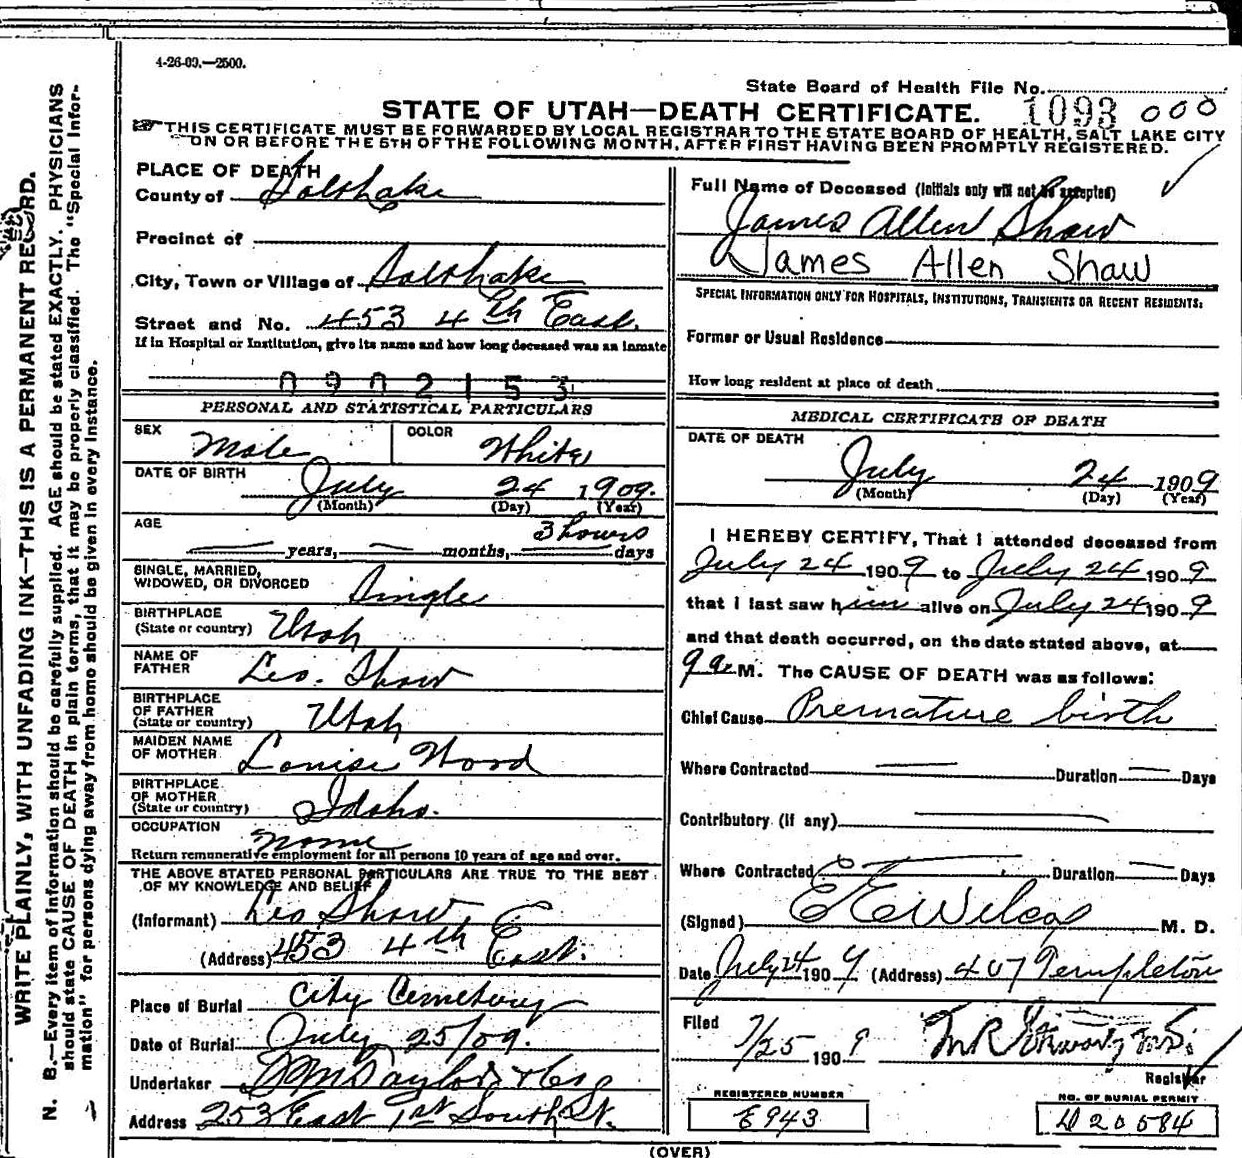 4-26-09.—2500.
State Board of Health File No.
STATE OF UTAH—DEATH CERTIFICATE. 1093 000
THIS CERTIFICATE MUST BE FORWARDED BY LOCAL REGISTRAR TO THE STATE BOARD OF HEALTH, SALT LAKE CITY
ON OR BEFORE THE 5TH OF THE FOLLOWING MONTH, AFTER FIRST HAVING BEEN PROMPTLY REGISTERED.
WRITE PLAINLY, WITH UNFADING INK—THIS IS A PERMANENT RECORD.
N. B.—Every item of information should be carefully supplied. AGE should be stated EXACTLY. PHYSICIANS
should state CAUSE OF DEATH in plain terms, that it may be properly classified. The "Special Infor-
mation" for persons dying away from home should be given in every instance.
PLACE OF DEATH
County of Salt Lake
Precinct of
City, Town or Village of Salt Lake
Street and No. 453 4th East
If in Hospital or Institution, give its name and how long deceased was an inmate
0902153
PERSONAL AND STATISTICAL PARTICULARS
SEX Male COLOR White
DATE OF BIRTH July 24 1909.
(Month) (Day) (Year)
AGE 3 hours
years, months, days
SINGLE, MARRIED,
WIDOWED, OR DIVORCED Single
BIRTHPLACE
(State or country) Utah
NAME OF
FATHER Leo. Shaw
BIRTHPLACE
OF FATHER
(State or country) Utah
MAIDEN NAME
OF MOTHER Louise Wood
BIRTHPLACE
OF MOTHER
(State or country) Idaho.
OCCUPATION None
Return remunerative employment for all persons 10 years of age and over.
THE ABOVE STATED PERSONAL PARTICULARS ARE TRUE TO THE BEST
OF MY KNOWLEDGE AND BELIEF
(Informant) Leo Shaw,
(Address) 453 4th East.
Place of Burial City Cemetery
Date of Burial July 25/09.
Undertaker Taylor & Co
Address 253 East 1st South St.
Full Name of Deceased (Initials only will not be accepted)
James Allen Shaw
James Allen Shaw
SPECIAL INFORMATION ONLY FOR HOSPITALS, INSTITUTIONS, TRANSIENTS OR RECENT RESIDENTS:
Former or Usual Residence
How long resident at place of death
MEDICAL CERTIFICATE OF DEATH
DATE OF DEATH
July 24 1909
(Month) (Day) (Year)
I HEREBY CERTIFY, That I attended deceased from
July 24 1909 to July 24 1909
that I last saw him alive on July 24 1909
and that death occurred, on the date stated above, at
9 a. M. The CAUSE OF DEATH was as follows:
Chief Cause Premature birth
Where Contracted Duration Days
Contributory (if any)
Where Contracted Duration Days
(Signed) E E Wilcox M. D.
Date July 24 1909 (Address) 407 Templeton
Filed
7/25 1909
Registrar
REGISTERED NUMBER
E943
NO. OF BURIAL PERMIT
D 20584
(OVER)